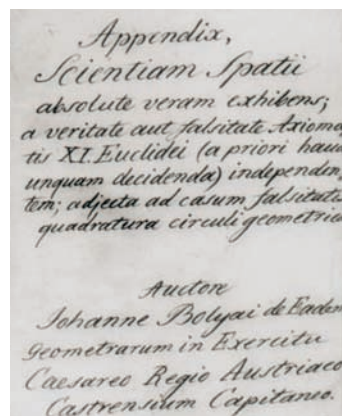 Appendix,
Scientiam Spatii
absolute veram exhibens;
a veritate aut falsitate Axioma
tis XI. Euclidei (a priori haud
unquam decidenda) independen
tem; adjecta ad casum falsitatis
quadratura circuli geometrica
Auctore
Johanne Bolyai de Eadem
Geometrarum in Exercitu
Caesareo Regio Austriaco
Castrensium Capitaneo.